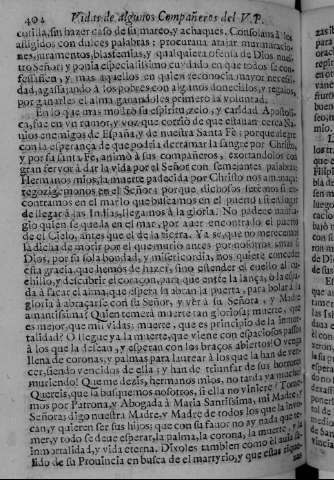 402 Vidas de algunos Compañeros del V.P.
costilla, sin hazer caso de su mareo, y achaques. Consolaua à los
afligidos con dulces palabras; procuraua atajar murmuracio-
nes, juramentos, blasfemias, y qualquiera ofensa de Dios nues-
tro Señor; y ponia especialissimo cuydado en que todos se con-
fessassen, y mas aquellos en quien reconocia mayor necessi-
dad, agassajando à los pobres con algunos donecillos, y regalos,
por ganarles el alma ganandoles primero la voluntad.
En lo que mas mostrò su espiritu, zelo, y caridad Apostoli-
ca, fue en vn rumor, y voz que corriò de que estauan cerca Na-
uios enemigos de España, y de nuestra Santa Fè; porque alegre
con la esperança de que podria derramar la sangre por Christo,
y por su santa Fè, animò à sus compañeros, exortandolos con
gran fervor à dar la vida por el Señor con semejantes palabras:
Hermanos mios, la muerte padecida por Christo nos amaga:
regozijemonos en el Señor; porque dichosos serèmos si en-
contramos en el mar lo que buscamos en el puerto; si en lugar
de llegar à las Indias, llegamos à la gloria. No padece naufra-
gio quien se queda en el mar, por auer encontrado el puerto
de el Cielo, antes que el de la tierra. Ya se, que no merecemos
la dicha de morir por el que murio antes por nosotros; mas si
Dios, por su sola bondad, y misericordia, nos quiere conceder
esta gracia, que hemos de hazer, sino estender el cuello al cu-
chillo, y descubrir el coraçon, para que entre la lança, ò la espa-
da à sacar el alma, que espera la abran la puerta, para bolar à la
gloria à abraçarse con su Señor, y vèr à su Señora, y Madre
amantissima? Quien temerà muerte tan gloriosa; muerte, que
es mejor, que mil vidas; muerte, que es principio de la inmor-
talidad? O llegue ya la muerte, que viene con espaciosos passos
à los que la desean, y esperan con los braços abiertos! O venga
llena de coronas, y palmas para laurear à los que la han de ven-
cer, siendo vencidos de ella; y han de triunfar de sus horrores
muriendo! Que me dezis, hermanos mios, no tarda ya mucho?
Quereis, que la busquemos nosotros, si ella no viniere? Tome-
mos por Patrona, y Abogada à Maria Santissima, mi Madre, y
Señora: digo nuestra Madre, y Madre de todos los que la inuo-
can, y quieren ser sus hijos; que con su fauor no ay nada que te-
mer, y todo se deue esperar, la palma, la corona, la muerte, la
inmortalidad, y vida eterna. Dixoles tambien como èl auia sa-
lido de su Prouincia en busca de el martyrio, y que essas